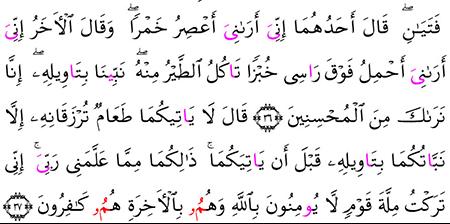 فَتَيَٰنِۖ قَالَ أَحَدُهُمَا إِنِّيَ أَرَىٰنِيَ أَعْصِرُ خَمْرٗاۖ وَقَالَ ٱلْأٓخَرُ إِنِّيَ
أَرَىٰنِيَ أَحْمِلُ فَوْقَ رَاسِي خُبْزٗا تَاكُلُ ٱلطَّيْرُ مِنْهُۖ نَبِّينَا بِتَاوِيلِهِۦۖ إِنَّا
نَرَىٰكَ مِنَ ٱلْمُحْسِنِينَ ۝٣٦ قَالَ لَا يَاتِيكُمَا طَعَامٞ تُرْزَقَانِهِۦ إِلَّا
نَبَّاتُكُمَا بِتَاوِيلِهِۦ قَبْلَ أَن يَاتِيَكُمَاۚ ذَٰلِكُمَا مِمَّا عَلَّمَنِي رَبِّيَۚ إِنِّي
تَرَكْتُ مِلَّةَ قَوْمٖ لَّا يُومِنُونَ بِٱللَّهِ وَهُمُۥ بِٱلْأٓخِرَةِ هُمُۥ كَٰفِرُونَ ۝٣٧